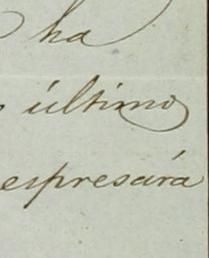 ha
último
espresára